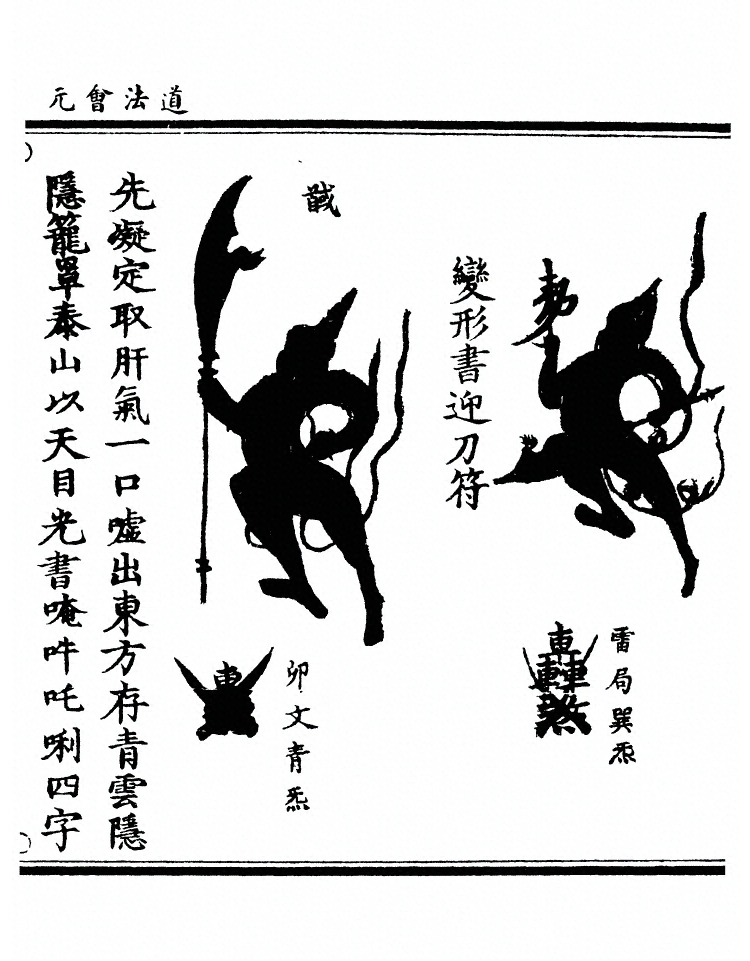 道法會元
變形書迎刀符
雷局巽炁
卯文青炁
先凝定取肝氣一口噓出東方存青雲隱
隱籠罩泰山以天目光書唵吽吒唎四字